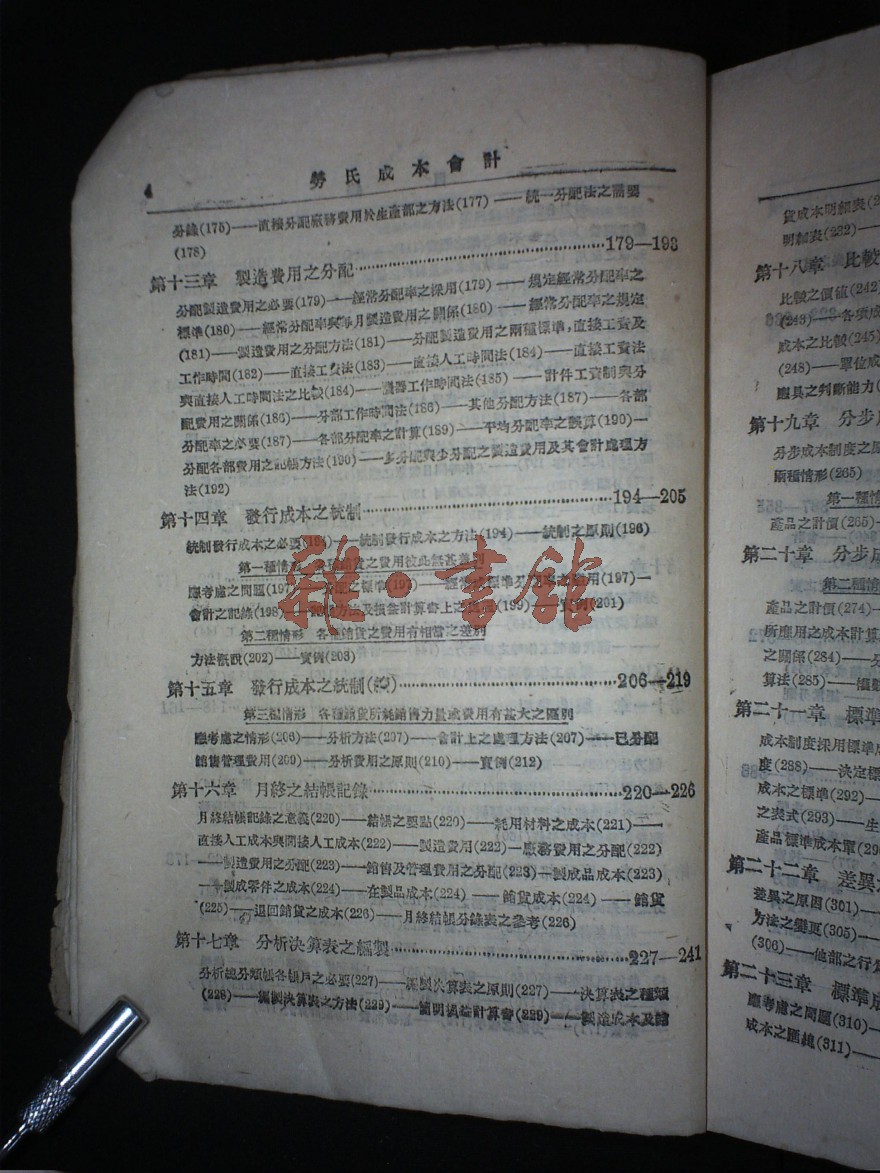 4
勞氏成本會計
分錄(175)——直接分配廠務費用於生產部之方法(177)——統一分配法之需要
(178)
第十三章 製造費用之分配……179—193
分配製造費用之必要(179)——經常分配率之採用(179)——規定經常分配率之
標準(180)——經常分配率與每月製造費用之關係(180)——經常分配率之規定
(181)——製造費用之分配方法(181)——分配製造費用之兩種標準,直接工資及
工作時間(182)——直接工資法(183)——直接人工時間法(184)——直接工資法
與直接人工時間法之比較(184)——機器工作時間法(185)——計件工資制與分
配費用之關係(186)——分部工作時間法(186)——其他分配方法(187)——各部
分配率之必要(187)——各部分配率之計算(189)——平均分配率之誤算(190)—
分配各部費用之記帳方法(190)——多分配與少分配之製造費用及其會計處理方
法(192)
第十四章 發行成本之統制……194—205
統制發行成本之必要(194)——統制發行成本之方法(194)——統制之原則(196)
第一種情形 銷貨之費用彼此無甚差別
應考慮之問題(197)——分配之標準(197)——經常 標準分配率之應用(197)—
會計之記錄(198)—— 方法及損益計算書上之 (199)——實例(201)
雜·書館
第二種情形 各種銷貨之費用有相當之差別
方法概說(202)——實例(203)
第十五章 發行成本之統制(續)……206—219
第三種情形 各種銷貨所耗銷售力量或費用有甚大之區別
應考慮之情形(206)——分析方法(207)——會計上之處理方法(207)——已分配
銷售管理費用(209)——分析費用之原則(210)——實例(212)
第十六章 月終之結帳記錄……220—226
月終結帳記錄之意義(220)——結帳之要點(220)——耗用材料之成本(221)——
直接人工成本與間接人工成本(222)——製造費用(222)—廠務費用之分配(222)
——製造費用之分配(223)——銷售及管理費用之分配(223)—製成品成本(223)
——製成零件之成本(224)——在製品成本(224)——銷貨成本(224)——銷貨
(225)——退回銷貨之成本(226)——月終結帳分錄表之參考(226)
第十七章 分析決算表之編製……227—241
分析總分類帳各帳戶之必要(227)——編製決算表之原則(227)——決算表之種類
(228)——編製決算表之方法(229)——簡明損益計算書(229)——製造成本及銷
貨成本明細表(2
明細表(232)——
第十八章 比較
比較之價值(242)
(243)——各項成
成本之比較(245)
(248)——單位成
應具之判斷能力(
第十九章 分步成
分步成本制度之原
兩種情形(265)
第一種情
產品之計價(265)
第二十章 分步成
第二種情
產品之計價(274)—
所應用之成本計算
之關係(284)——分
算法(285)——
第二十一章 標準
成本制度採用標準
度(288)——決定標
成本之標準(292)—
之表式(293)——生
產品標準成本單(29
第二十二章 差異
差異之原因(301)—
方法之變更(305)—
(306)——他部之行
第二十三章 標準成
應考慮之問題(310)—
成本之匯總(311)—